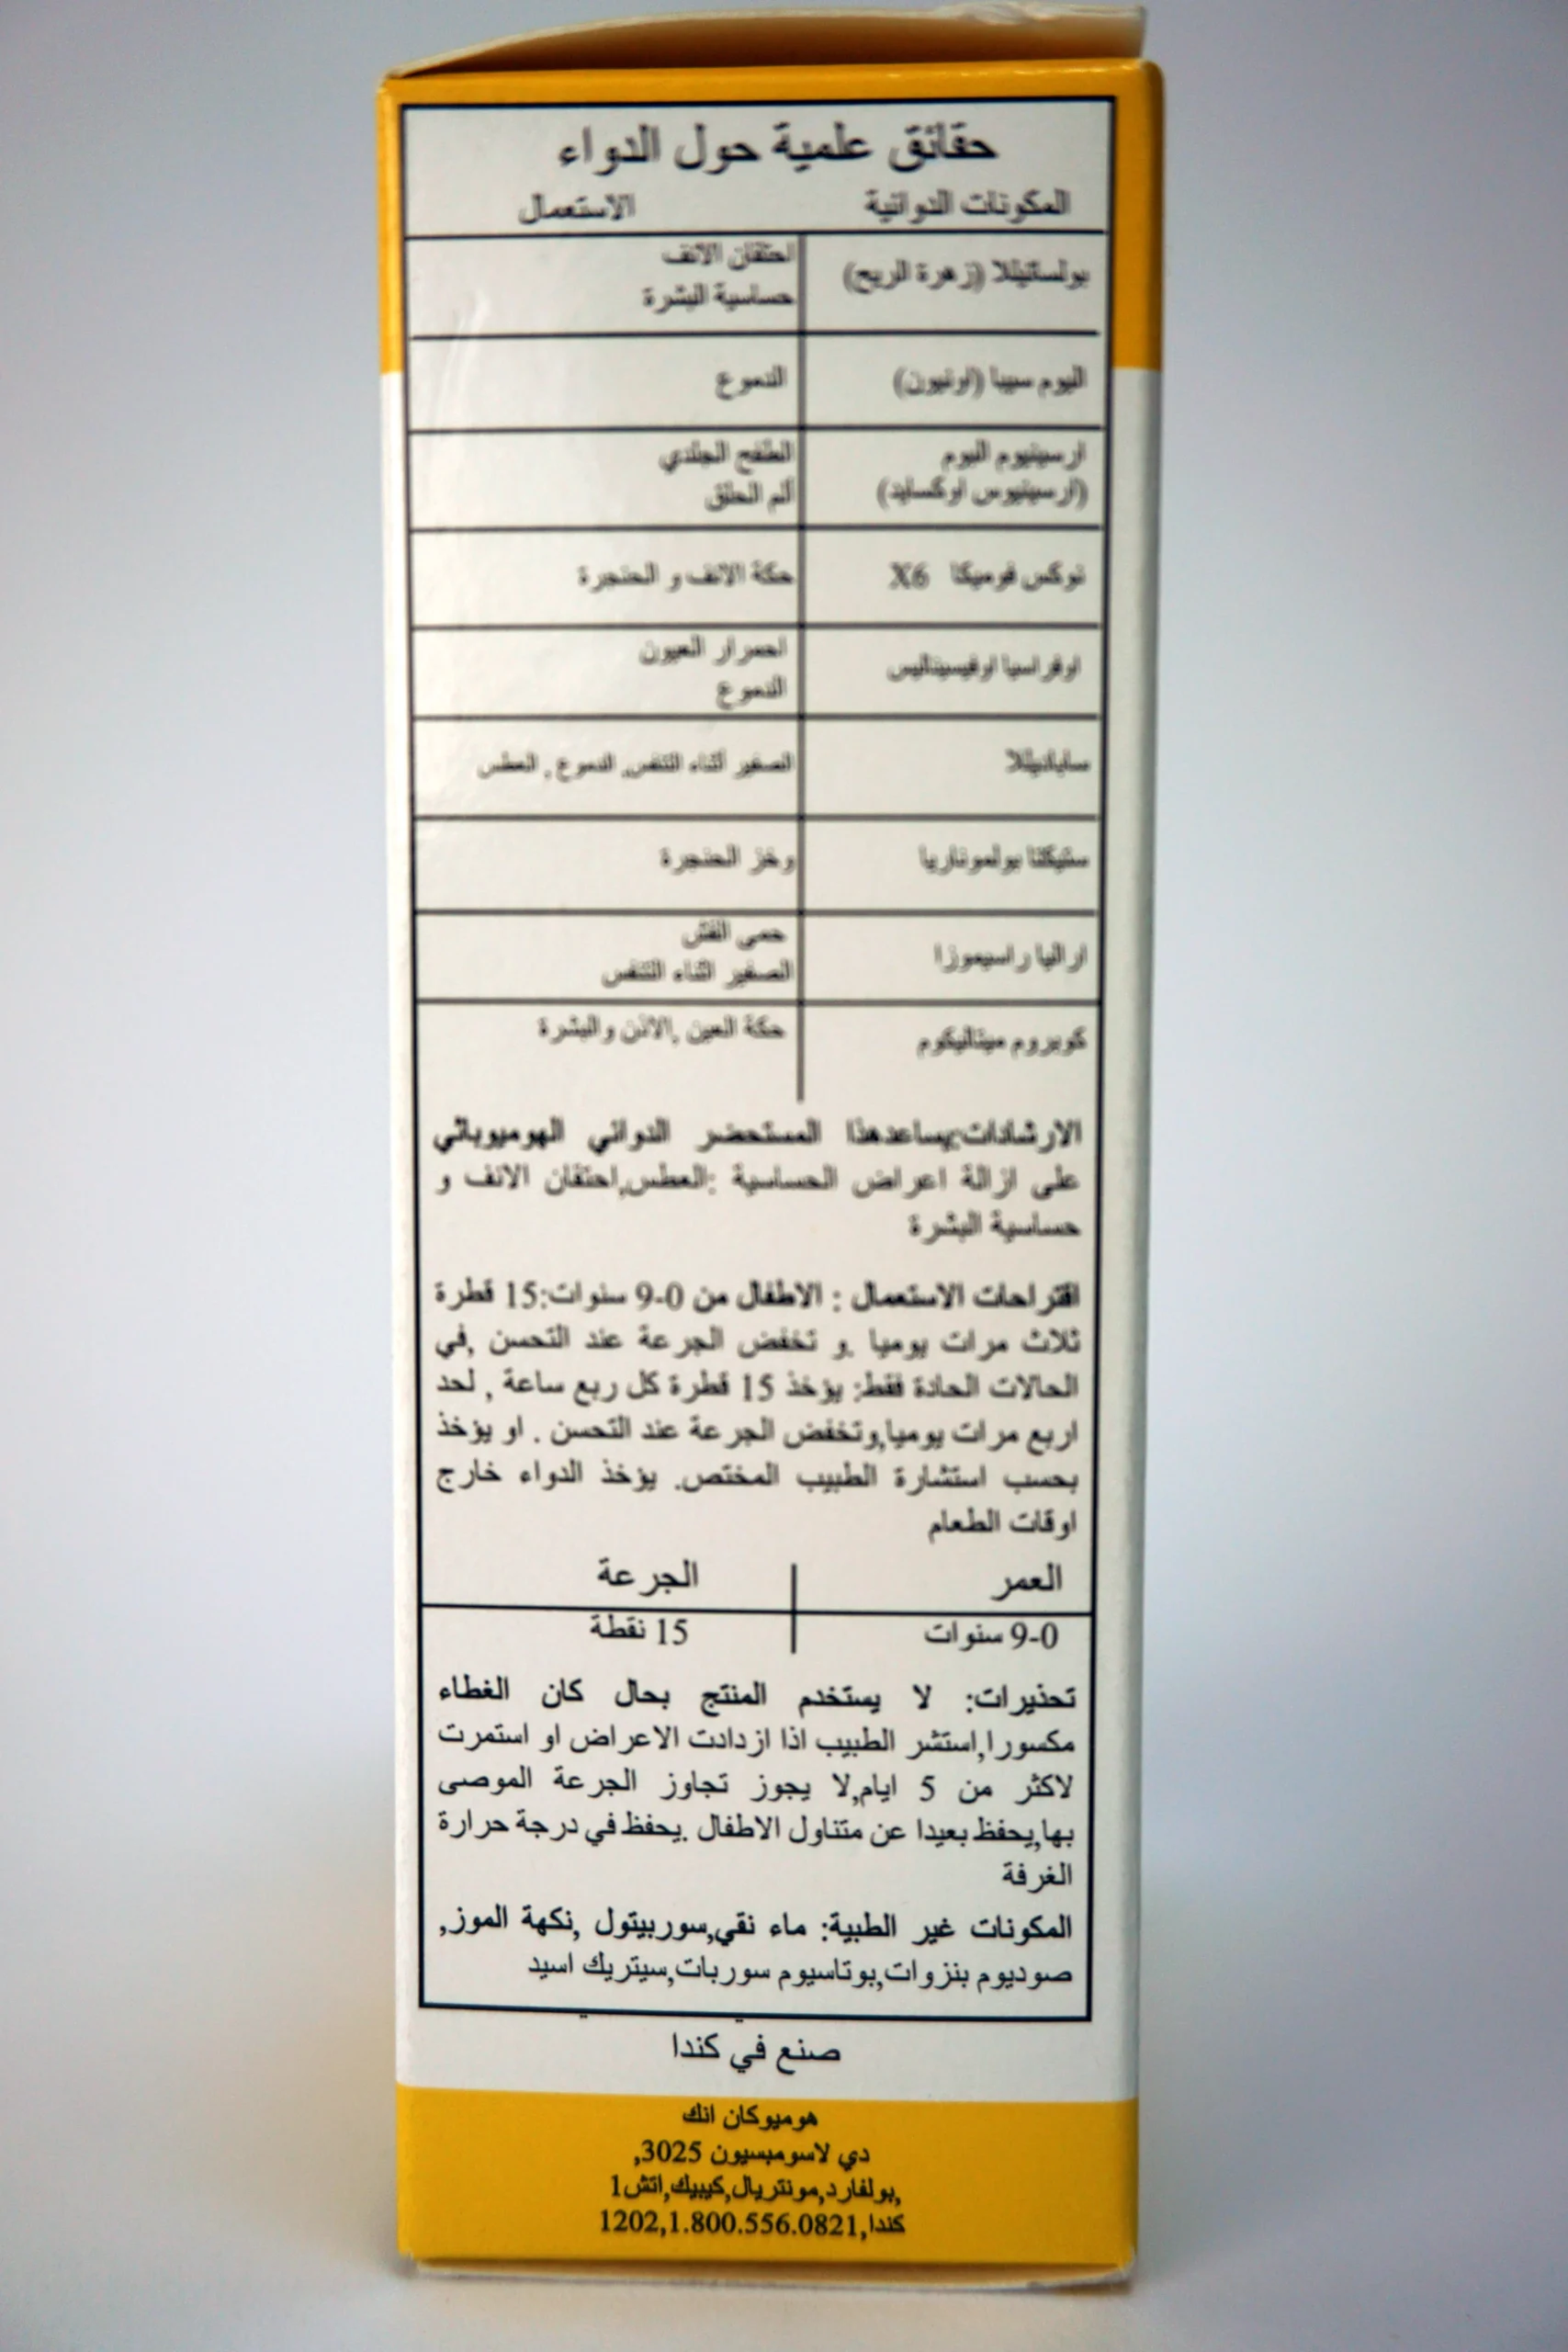 حقائق علمية حول الدواء
المكونات الدوائية الاستعمال
بولساتيللا (زهرة الريح) احتقان الانف
حساسية البشرة
اليوم سيبا (اونيون) الدموع
ارسينيوم البوم الطفح الجلدي
(ارسينيوس اوكسايد) ألم الحلق
نوكس فوميكا X6 حكة الانف و الحنجرة
اوفراسيا اوفيسيناليس احمرار العيون
الدموع
ساباديللا الصفير أثناء التنفس, الدموع , العطس
ستيكتا بولموناريا وخز الحنجرة
اراليا راسيموزا حمى القش
الصفير اثناء التنفس
كوبروم ميتاليكوم حكة العين ,الاذن والبشرة
الارشادات:يساعدهذا المستحضر الدوائي الهوميوباثي
على ازالة اعراض الحساسية :العطس,احتقان الانف و
حساسية البشرة
اقتراحات الاستعمال : الاطفال من 0-9 سنوات:15 قطرة
ثلاث مرات يوميا .و تخفض الجرعة عند التحسن ,في
الحالات الحادة فقط: يؤخذ 15 قطرة كل ربع ساعة , لحد
اربع مرات يوميا,وتخفض الجرعة عند التحسن . او يؤخذ
بحسب استشارة الطبيب المختص. يؤخذ الدواء خارج
اوقات الطعام
العمر الجرعة
0-9 سنوات 15 نقطة
تحذيرات: لا يستخدم المنتج بحال كان الغطاء
مكسورا,استشر الطبيب اذا ازدادت الاعراض او استمرت
لاكثر من 5 ايام,لا يجوز تجاوز الجرعة الموصى
بها,يحفظ بعيدا عن متناول الاطفال .يحفظ في درجة حرارة
الغرفة
المكونات غير الطبية: ماء نقي,سوربيتول ,نكهة الموز,
صوديوم بنزوات,بوتاسيوم سوربات,سيتريك اسيد
صنع في كندا
هوميوكان انك
دي لاسومبسيون 3025,
,بولفارد,مونتريال,كيبيك,اتش1
كندا,1202,1.800.556.0821